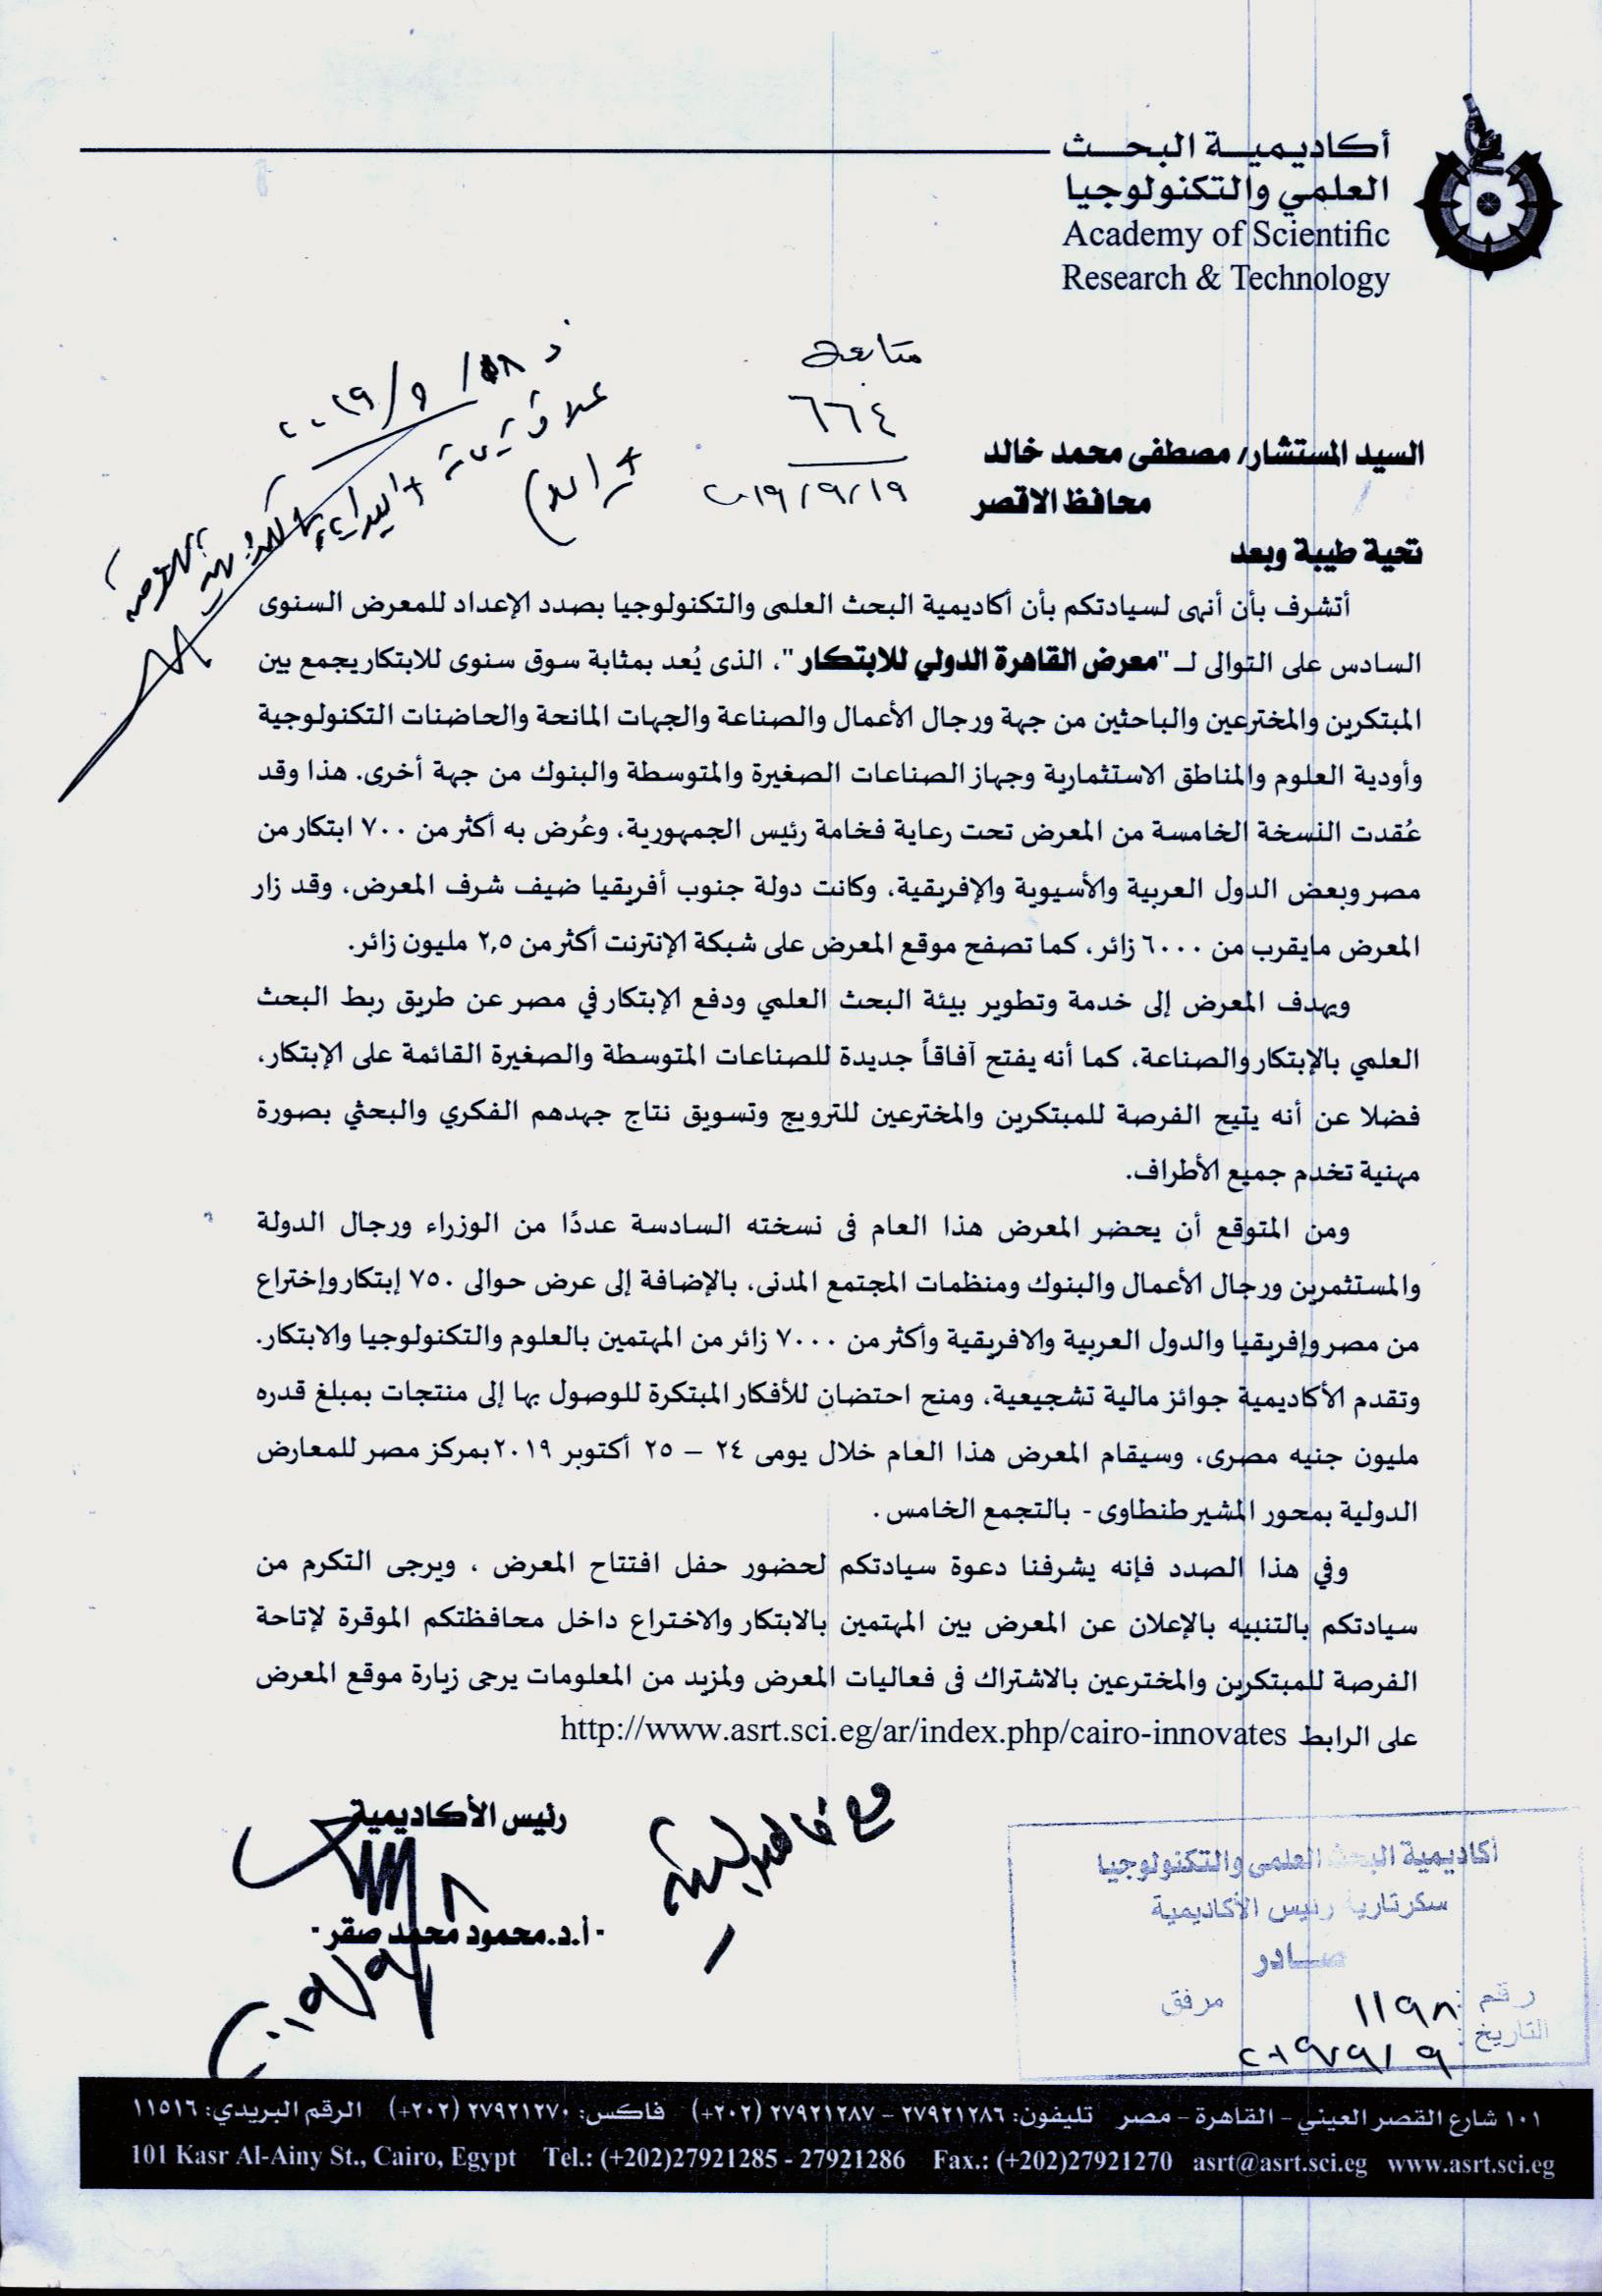 أكاديمية البحث
العلمي والتكنولوجيا
Academy of Scientific
Research & Technology
متابعة
٦٦٤
٢٠١٩/٩/١٩
السيد المستشار/ مصطفى محمد خالد
محافظ الاقصر
تحية طيبة وبعد
أتشرف بأن أنهى لسيادتكم بأن أكاديمية البحث العلمى والتكنولوجيا بصدد الإعداد للمعرض السنوى
السادس على التوالى لـ "معرض القاهرة الدولي للابتكار"، الذى يُعد بمثابة سوق سنوى للابتكار يجمع بين
المبتكرين والمخترعين والباحثين من جهة ورجال الأعمال والصناعة والجهات المانحة والحاضنات التكنولوجية
وأودية العلوم والمناطق الاستثمارية وجهاز الصناعات الصغيرة والمتوسطة والبنوك من جهة أخرى. هذا وقد
عُقدت النسخة الخامسة من المعرض تحت رعاية فخامة رئيس الجمهورية، وعُرض به أكثر من ٧٠٠ ابتكار من
مصر وبعض الدول العربية والأسيوية والإفريقية، وكانت دولة جنوب أفريقيا ضيف شرف المعرض، وقد زار
المعرض مايقرب من ٦٠٠٠ زائر، كما تصفح موقع المعرض على شبكة الإنترنت أكثر من ٢,٥ مليون زائر.
ويهدف المعرض إلى خدمة وتطوير بيئة البحث العلمي ودفع الإبتكار في مصر عن طريق ربط البحث
العلمي بالإبتكار والصناعة، كما أنه يفتح آفاقاً جديدة للصناعات المتوسطة والصغيرة القائمة على الإبتكار،
فضلا عن أنه يتيح الفرصة للمبتكرين والمخترعين للترويج وتسويق نتاج جهدهم الفكري والبحثي بصورة
مهنية تخدم جميع الأطراف.
ومن المتوقع أن يحضر المعرض هذا العام فى نسخته السادسة عددًا من الوزراء ورجال الدولة
والمستثمرين ورجال الأعمال والبنوك ومنظمات المجتمع المدنى، بالإضافة إلى عرض حوالى ٧٥٠ إبتكار وإختراع
من مصر وإفريقيا والدول العربية والافريقية وأكثر من ٧٠٠٠ زائر من المهتمين بالعلوم والتكنولوجيا والابتكار.
وتقدم الأكاديمية جوائز مالية تشجيعية، ومنح احتضان للأفكار المبتكرة للوصول بها إلى منتجات بمبلغ قدره
مليون جنيه مصرى، وسيقام المعرض هذا العام خلال يومى ٢٤ – ٢٥ أكتوبر ٢٠١٩ بمركز مصر للمعارض
الدولية بمحور المشير طنطاوى - بالتجمع الخامس .
وفي هذا الصدد فإنه يشرفنا دعوة سيادتكم لحضور حفل افتتاح المعرض ، ويرجى التكرم من
سيادتكم بالتنبيه بالإعلان عن المعرض بين المهتمين بالابتكار والاختراع داخل محافظتكم الموقرة لإتاحة
الفرصة للمبتكرين والمخترعين بالاشتراك فى فعاليات المعرض ولمزيد من المعلومات يرجى زيارة موقع المعرض
على الرابط http://www.asrt.sci.eg/ar/index.php/cairo-innovates
رئيس الأكاديمية
-أ.د.محمود محمد صقر-
أكاديمية البحث العلمى والتكنولوجيا
سكرتارية رئيس الأكاديمية
صـــادر
رقم : ١١٩٨ مرفق
التاريخ : ٢٠١٩/٩/٩
١٠١ شارع القصر العيني – القاهرة – مصر تليفون: ٢٧٩٢١٢٨٦ – ٢٧٩٢١٢٨٧ (٢٠٢+) فاكس: ٢٧٩٢١٢٧٠ (٢٠٢+) الرقم البريدي: ١١٥١٦
101 Kasr Al-Ainy St., Cairo, Egypt Tel.: (+202)27921285 - 27921286 Fax.: (+202)27921270 asrt@asrt.sci.eg www.asrt.sci.eg